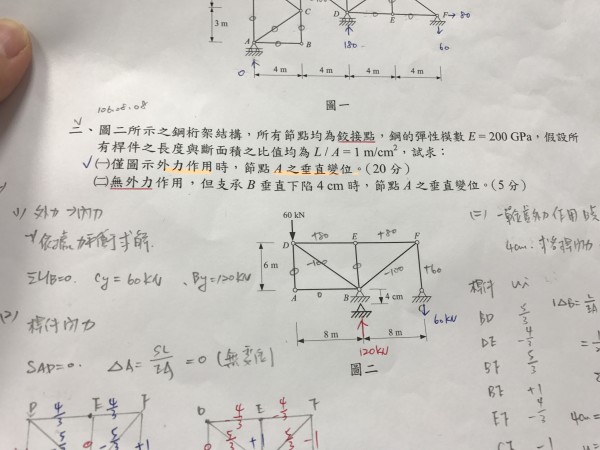 C
3 m
A
B
D
E
F→80
180
60
0
4 m 4 m 4 m 4 m
圖一
106.08.08
二、圖二所示之鋼桁架結構，所有節點均為鉸接點，鋼的彈性模數 E = 200 GPa，假設所
有桿件之長度與斷面積之比值均為 L / A = 1 m/cm²，試求：
✓㈠僅圖示外力作用時，節點 A 之垂直變位。(20 分)
㈡無外力作用，但支承 B 垂直下陷 4 cm 時，節點 A 之垂直變位。(5 分)
(1) 外力
ΣMB=0. Cy=60kN、By=120kN
(2) 桿件內力
SAD=0. ΔA= =0
60 kN
D +80 E +80 F
6 m 0 -100 0 -100 +60
A 0 B
4 cm
60kN
8 m 8 m
120kN
圖二
(二)
4cm:
桿件 ui
BD 5/3
DE -4/3
BF 5/3
BE +1
EF -4/3
-1
4cm=
D 4/3 E 4/3 F
5/3 +1
D 4/3 E 4/3 F
5/3 +1 5/3 -1